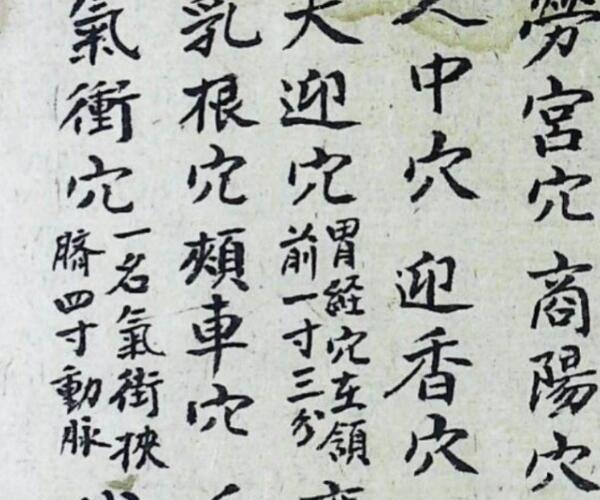 勞宮穴 商陽穴
人中穴 迎香穴
大迎穴 胃経穴在頷前一寸三分
乳根穴 頰車穴
氣衝穴 一名氣街挾臍四寸動脉